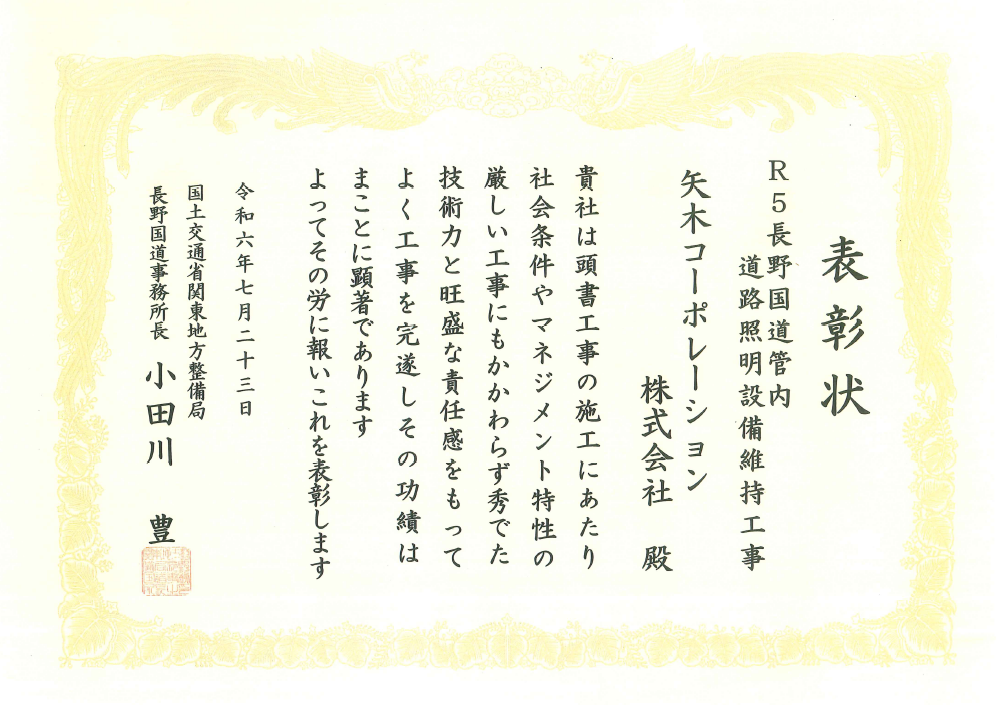 表彰状
R5長野国道管内
道路照明設備維持工事
矢木コーポレーション
株式会社 殿
貴社は頭書工事の施工にあたり
社会条件やマネジメント特性の
厳しい工事にもかかわらず秀でた
技術力と旺盛な責任感をもって
よく工事を完遂しその功績は
まことに顕著であります
よってその労に報いこれを表彰します
令和六年七月二十三日
国土交通省関東地方整備局
長野国道事務所長 小田川 豊